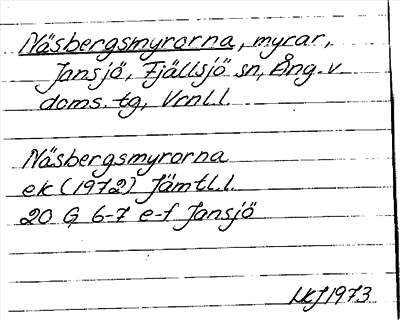 Näsbergsmyrorna, myrar,
Jansjö, Fjällsjö sn, Ång. v.
doms. tg, Vrnl. l.
Näsbergsmyrorna
ek (1972) Jämtl. l.
20 G 6-7 e-f Jansjö
1973